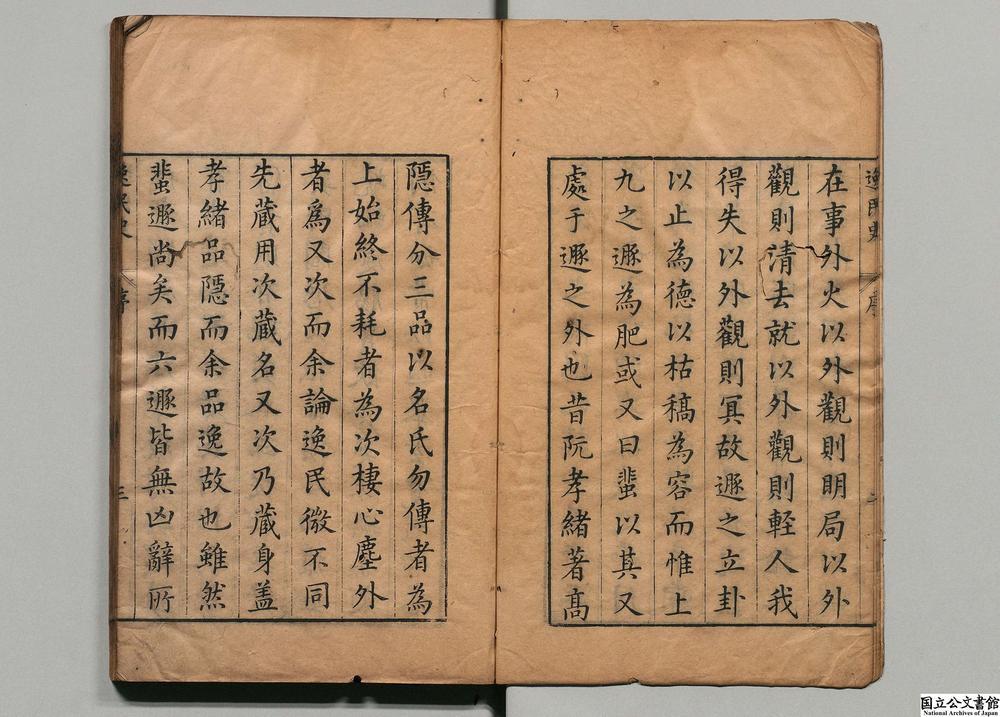 逸民史
序
在事外火以外觀則明局以外
觀則清去就以外觀則軽人我
得失以外觀則冥故遯之立卦
以止為德以枯稿為容而惟上
九之遯為肥或又曰蜚以其又
處于遯之外也昔阮孝緒著髙
隱傳分三品以名氏勿傳者為
上始終不耗者為次棲心塵外
者爲又次而余論逸民微不同
先蔵用次蔵名又次乃蔵身盖
孝緒品隱而余品逸故也雖然
蜚遯尚矣而六遯皆無凶辭所
逸民史
序
三
国立公文書館
National Archives of Japan